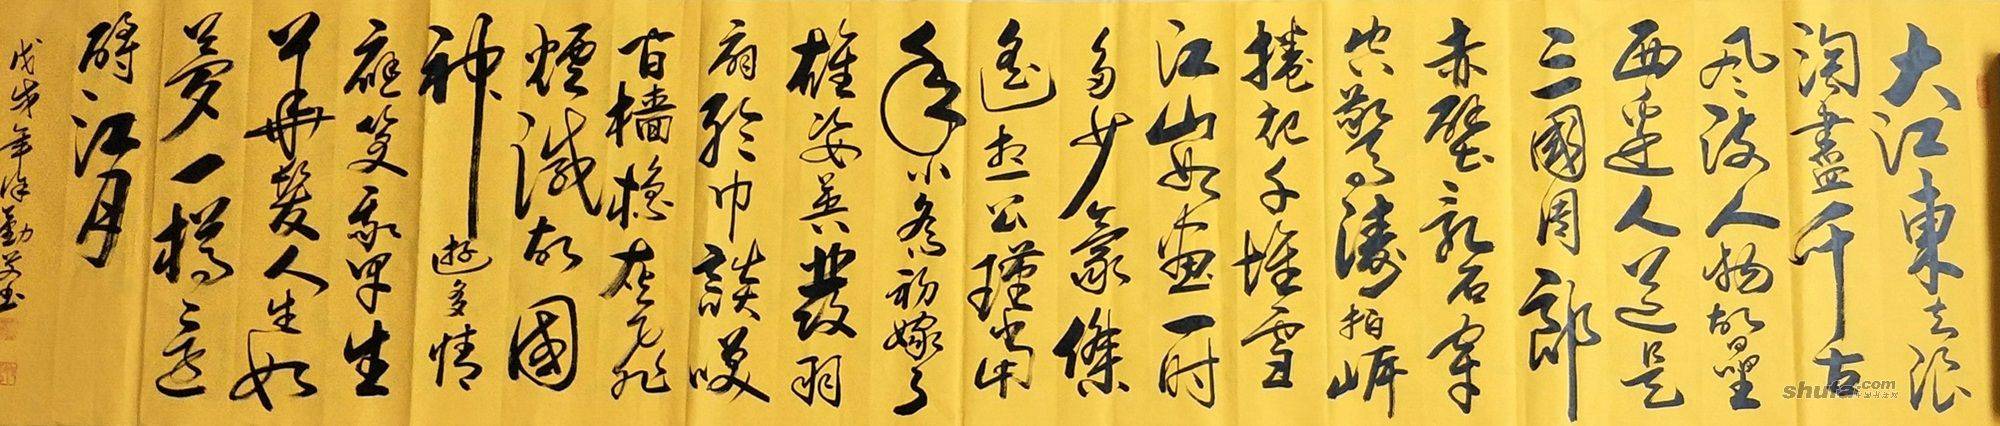 大江東去浪
淘盡千古
风流人物故壘
西邊人道是
三國周郎
赤壁乱石穿
空驚濤拍岍
捲起千堆雪
江山如畫一时
多少豪傑
遙想公瑾當
年小喬初嫁了
雄姿英發羽
扇綸巾談笑
间檣櫓灰飛
煙滅故國
神遊多情
應笑我早生
華髮人生如
夢一樽還
酹江月
戊戌年徐勤书
shufa.com